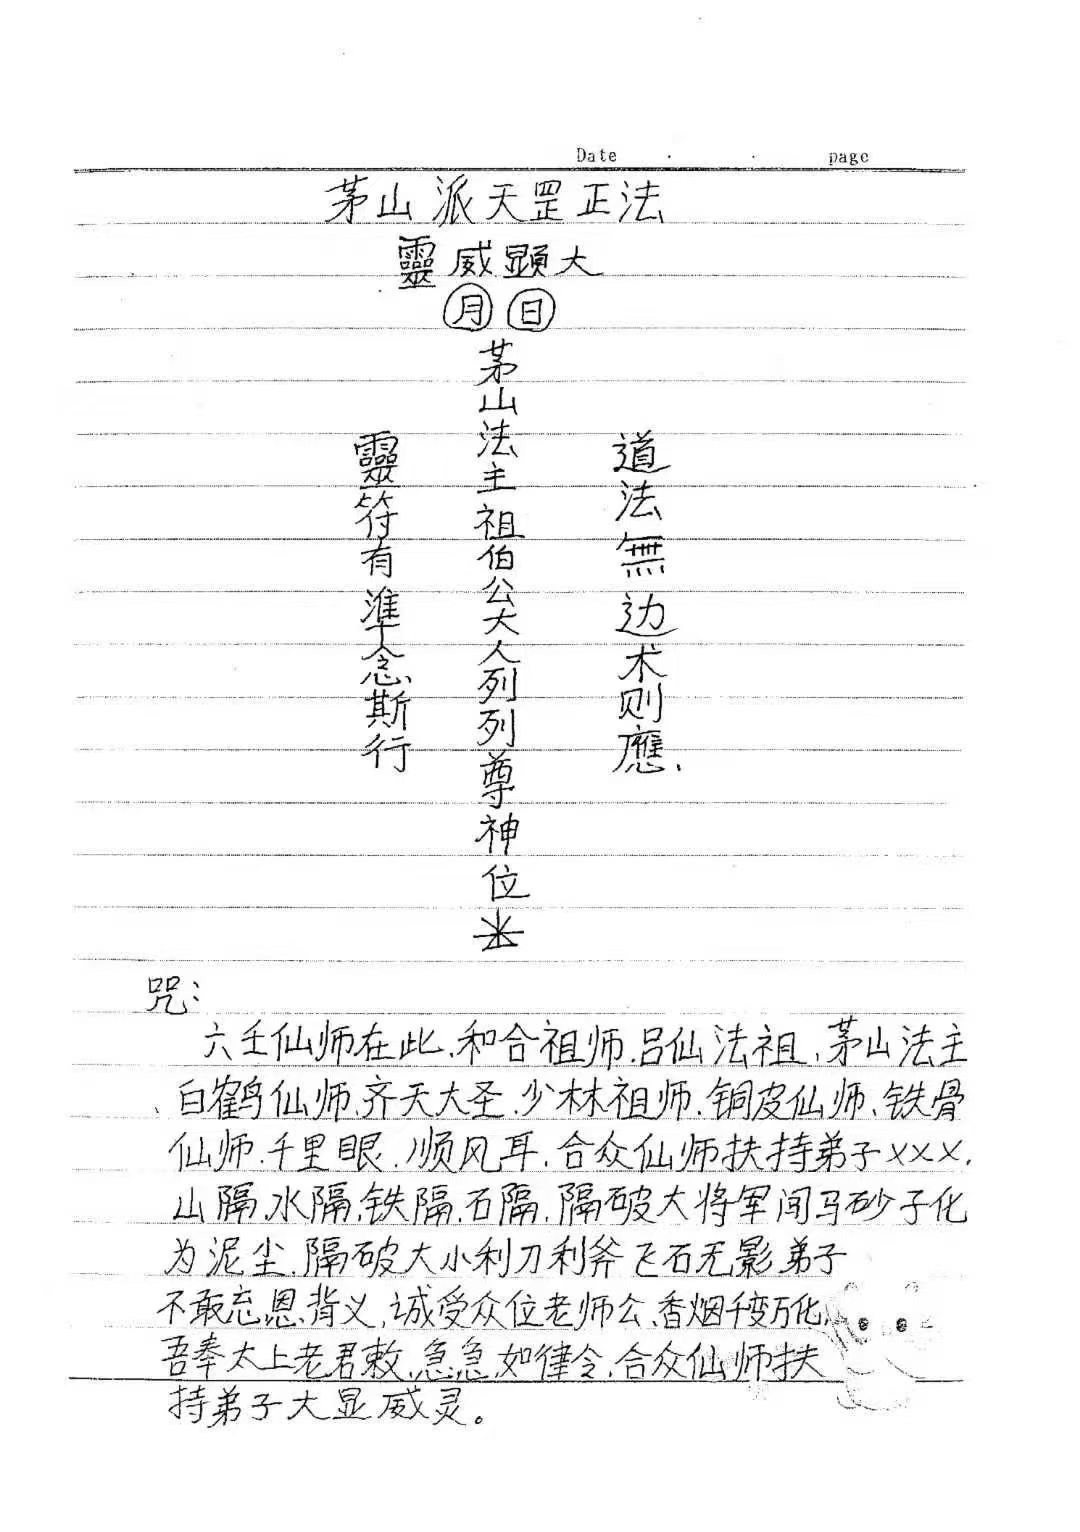 Date · · page
茅山派天罡正法
靈威顕大
月日
茅山法主祖伯公大人列列尊神位
道法無边术则應、
靈符有準念斯行
咒：
六壬仙师在此、和合祖师、吕仙法祖、茅山法主
、白鹤仙师、齐天大圣、少林祖师、铜皮仙师、铁骨
仙师、千里眼、顺风耳、合众仙师扶持弟子×××、
山隔、水隔、铁隔、石隔、隔破大将军闯马砂子化
为泥尘、隔破大小利刀利斧飞石无影弟子
不敢忘恩背义、诚受众位老师公、香烟千变万化、
吾奉太上老君敕、急急如律令、合众仙师扶
持弟子大显威灵。